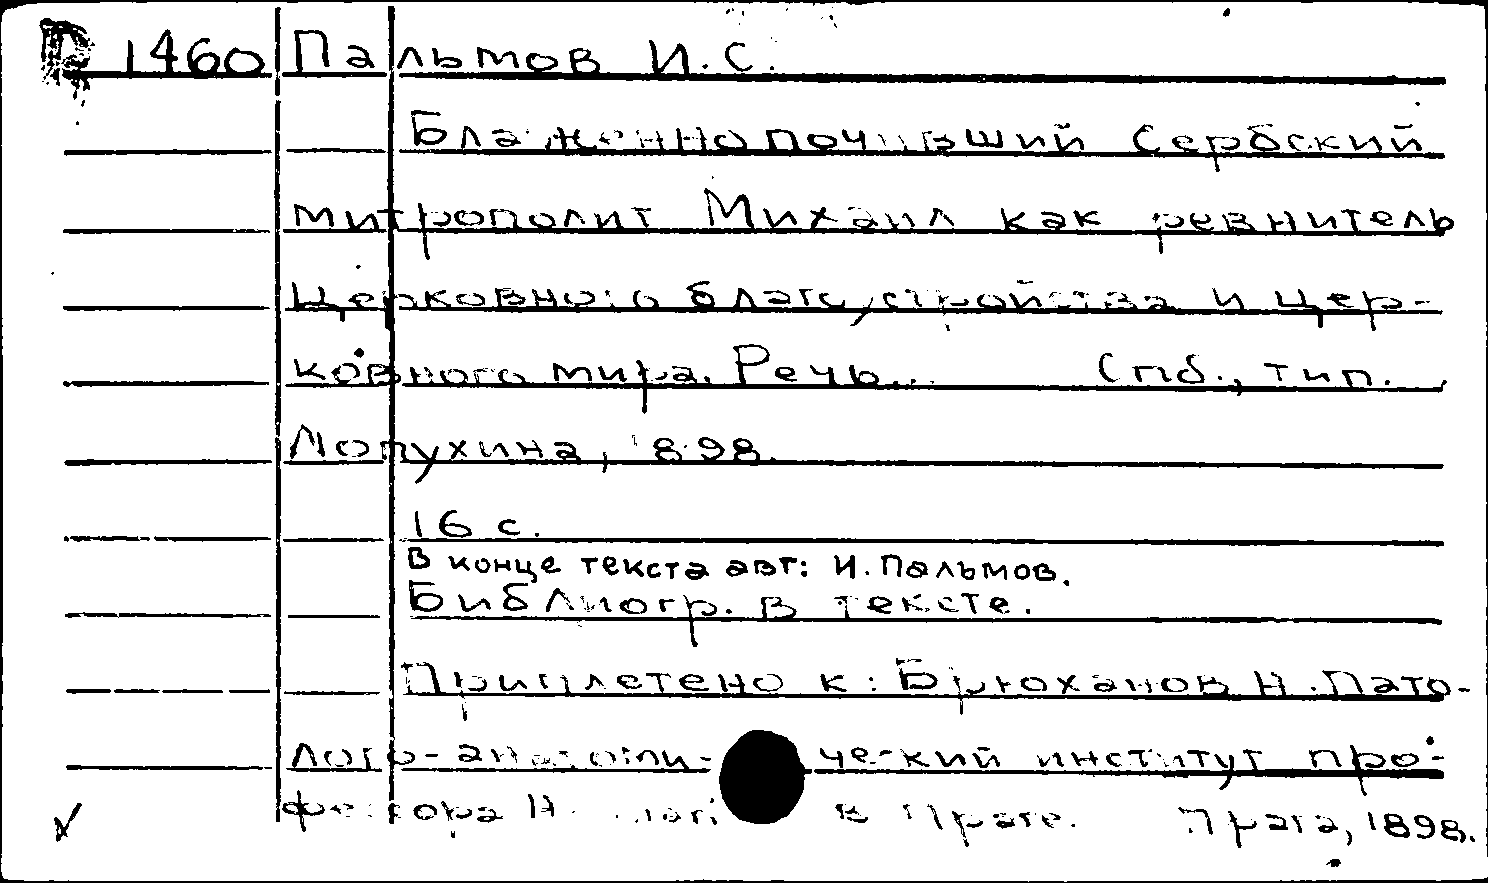 1460 Пальмов И.С.
Блаженнопочивший Сербский
митрополит Михаил как ревнитель
церковного благоустройства и цер-
ковного мира. Речь... Спб., тип.
Лопухина, 1898.
16 с.
В конце текста авт: И. Пальмов.
Библиогр. в тексте.
Приплетено к: Брюханов Н. Пато-
лого-анатоми-ческий институт про-
фессора в Праге. Прага, 1898.